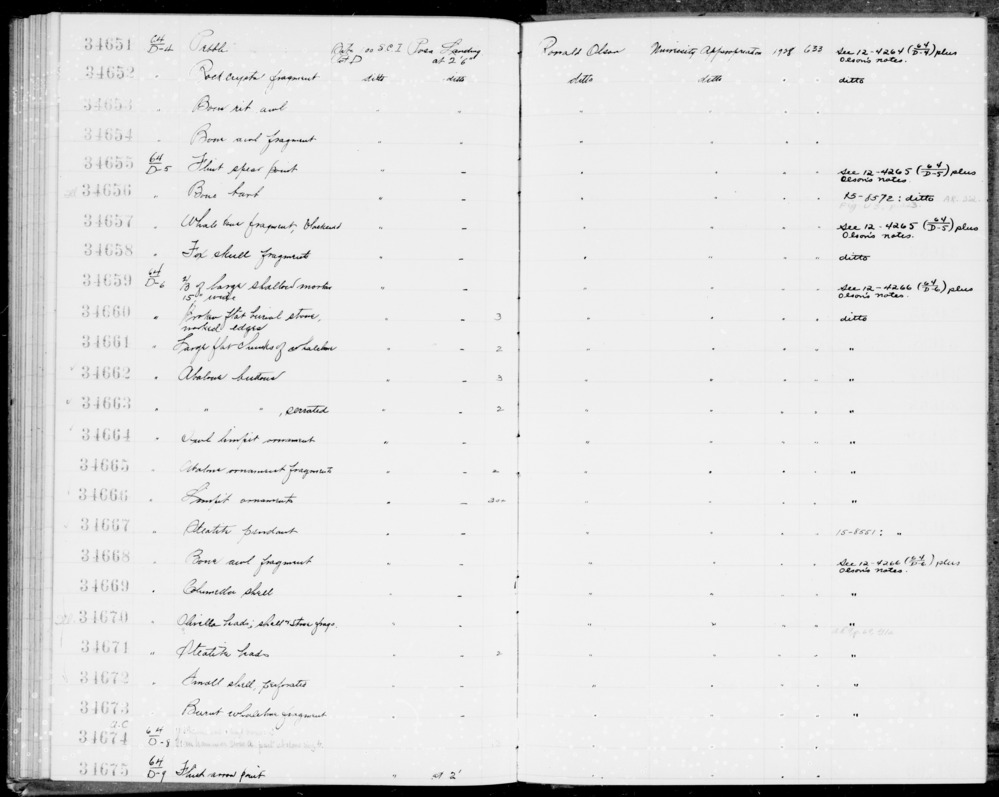 34651 64/D-4 Pebble " S C I Poza Landing at 2'6" Ronald Olson University Appropriation 1928 633 See 12-4264 (64/D-4) plus Olson's notes.
34652 " Rock crystal fragment ditto ditto ditto ditto " " ditto
34653 " Bone awl " " " " "
34654 " Bone awl fragment " " " " " "
34655 64/D-5 Flint spear point " " " " " " See 12-4265 (64/D-5) plus Olson's notes
34656 " Bone barb " " " " " " 15-8572: ditto
34657 " Whale bone fragment, " " " " " " See 12-4265 (64/D-5) plus Olson's notes.
34658 " Fox skull fragments " " " " " " ditto
34659 64/D-6 2/3 of large shallow mortar 15" wide " " " " " " See 12-4266 (64/D-6) plus Olson's notes.
34660 " Broken flat burial stone, worked edges " " 3 " " " " ditto
34661 " Large flat chunks of whalebone " " 2 " " " " "
34662 " Abalone buttons " " 3 " " " " "
34663 " " ", serrated " " 2 " " " " "
34664 " limpit ornament " " " " " " "
34665 " Abalone ornament fragments " " " " " " "
34666 " Limpit ornaments " " " " " " "
34667 " Steatite pendant " " " " " " 15-8551: "
34668 " Bone awl fragment " " " " " " See 12-4266 (64/D-6) plus Olson's notes.
34669 " Columella shell " " " " " " "
34670 " Olivella beads; shell " stone frags. " " " " " " "
34671 " Steatite beads " " 2 " " " " "
34672 " Small shell, perforated " " " " " "
34673 " Burnt whalebone fragment " " " " " " "
34674 64/D-8
34675 64/D-9 Flint arrow point " at 2' " " " "